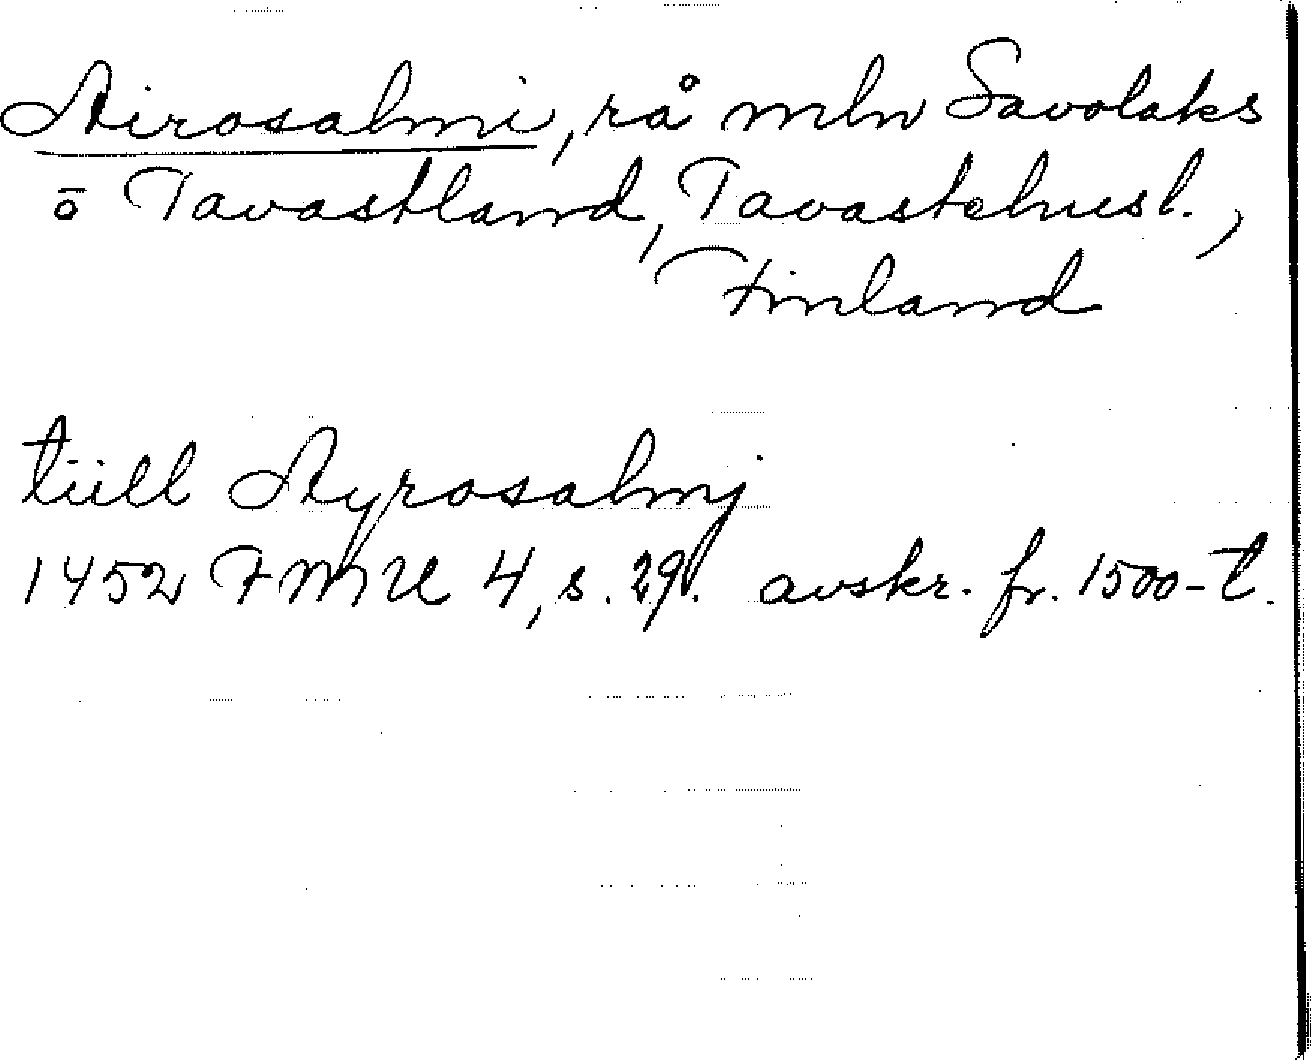 Airosalmi, rå mln Savolaks
o Tavastland, Tavastehusl.,
Finland
tiill Ayrosalmj
1452 FMU 4, s. 29. avskr. fr. 1500-t.